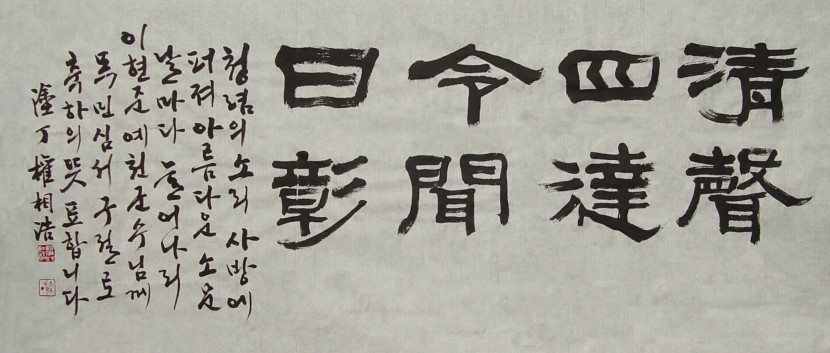 清聲
四達
令聞
日彰
청렴의 소리 사방에
퍼져 아름다운 소문
날마다 들어나리
이현준 예천군수님께
목민심서 구절로
축하의 뜻 표합니다
塗丁 權相浩